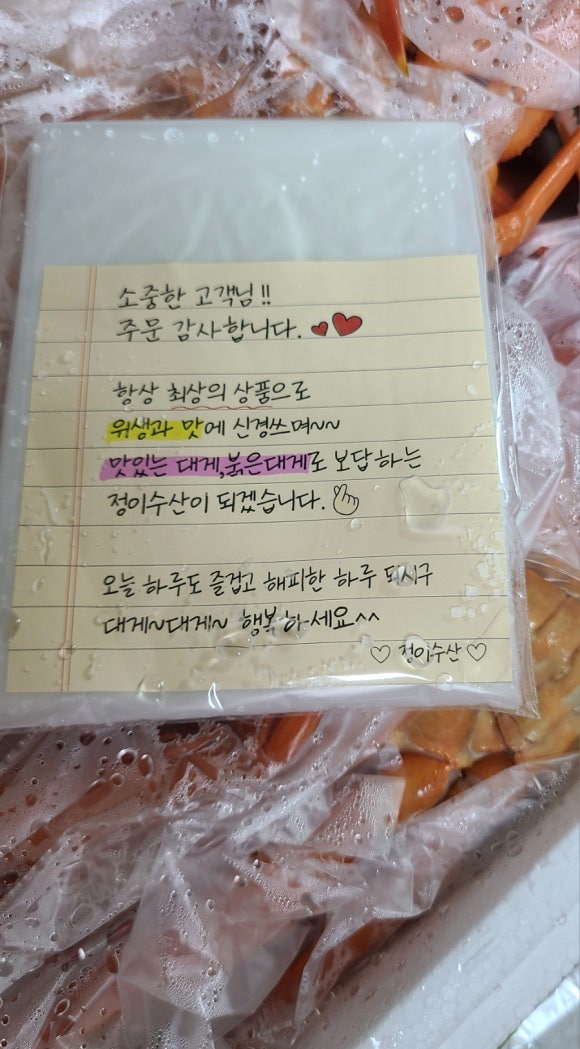 소중한 고객님!!
주문 감사합니다.
항상 최상의 상품으로
위생과 맛에 신경쓰며~~
맛있는 대게,붉은대게로 보답하는
정이수산이 되겠습니다.
오늘 하루도 즐겁고 해피한 하루 되시구
대게~대게~ 행복하세요^^
♡ 정이수산 ♡